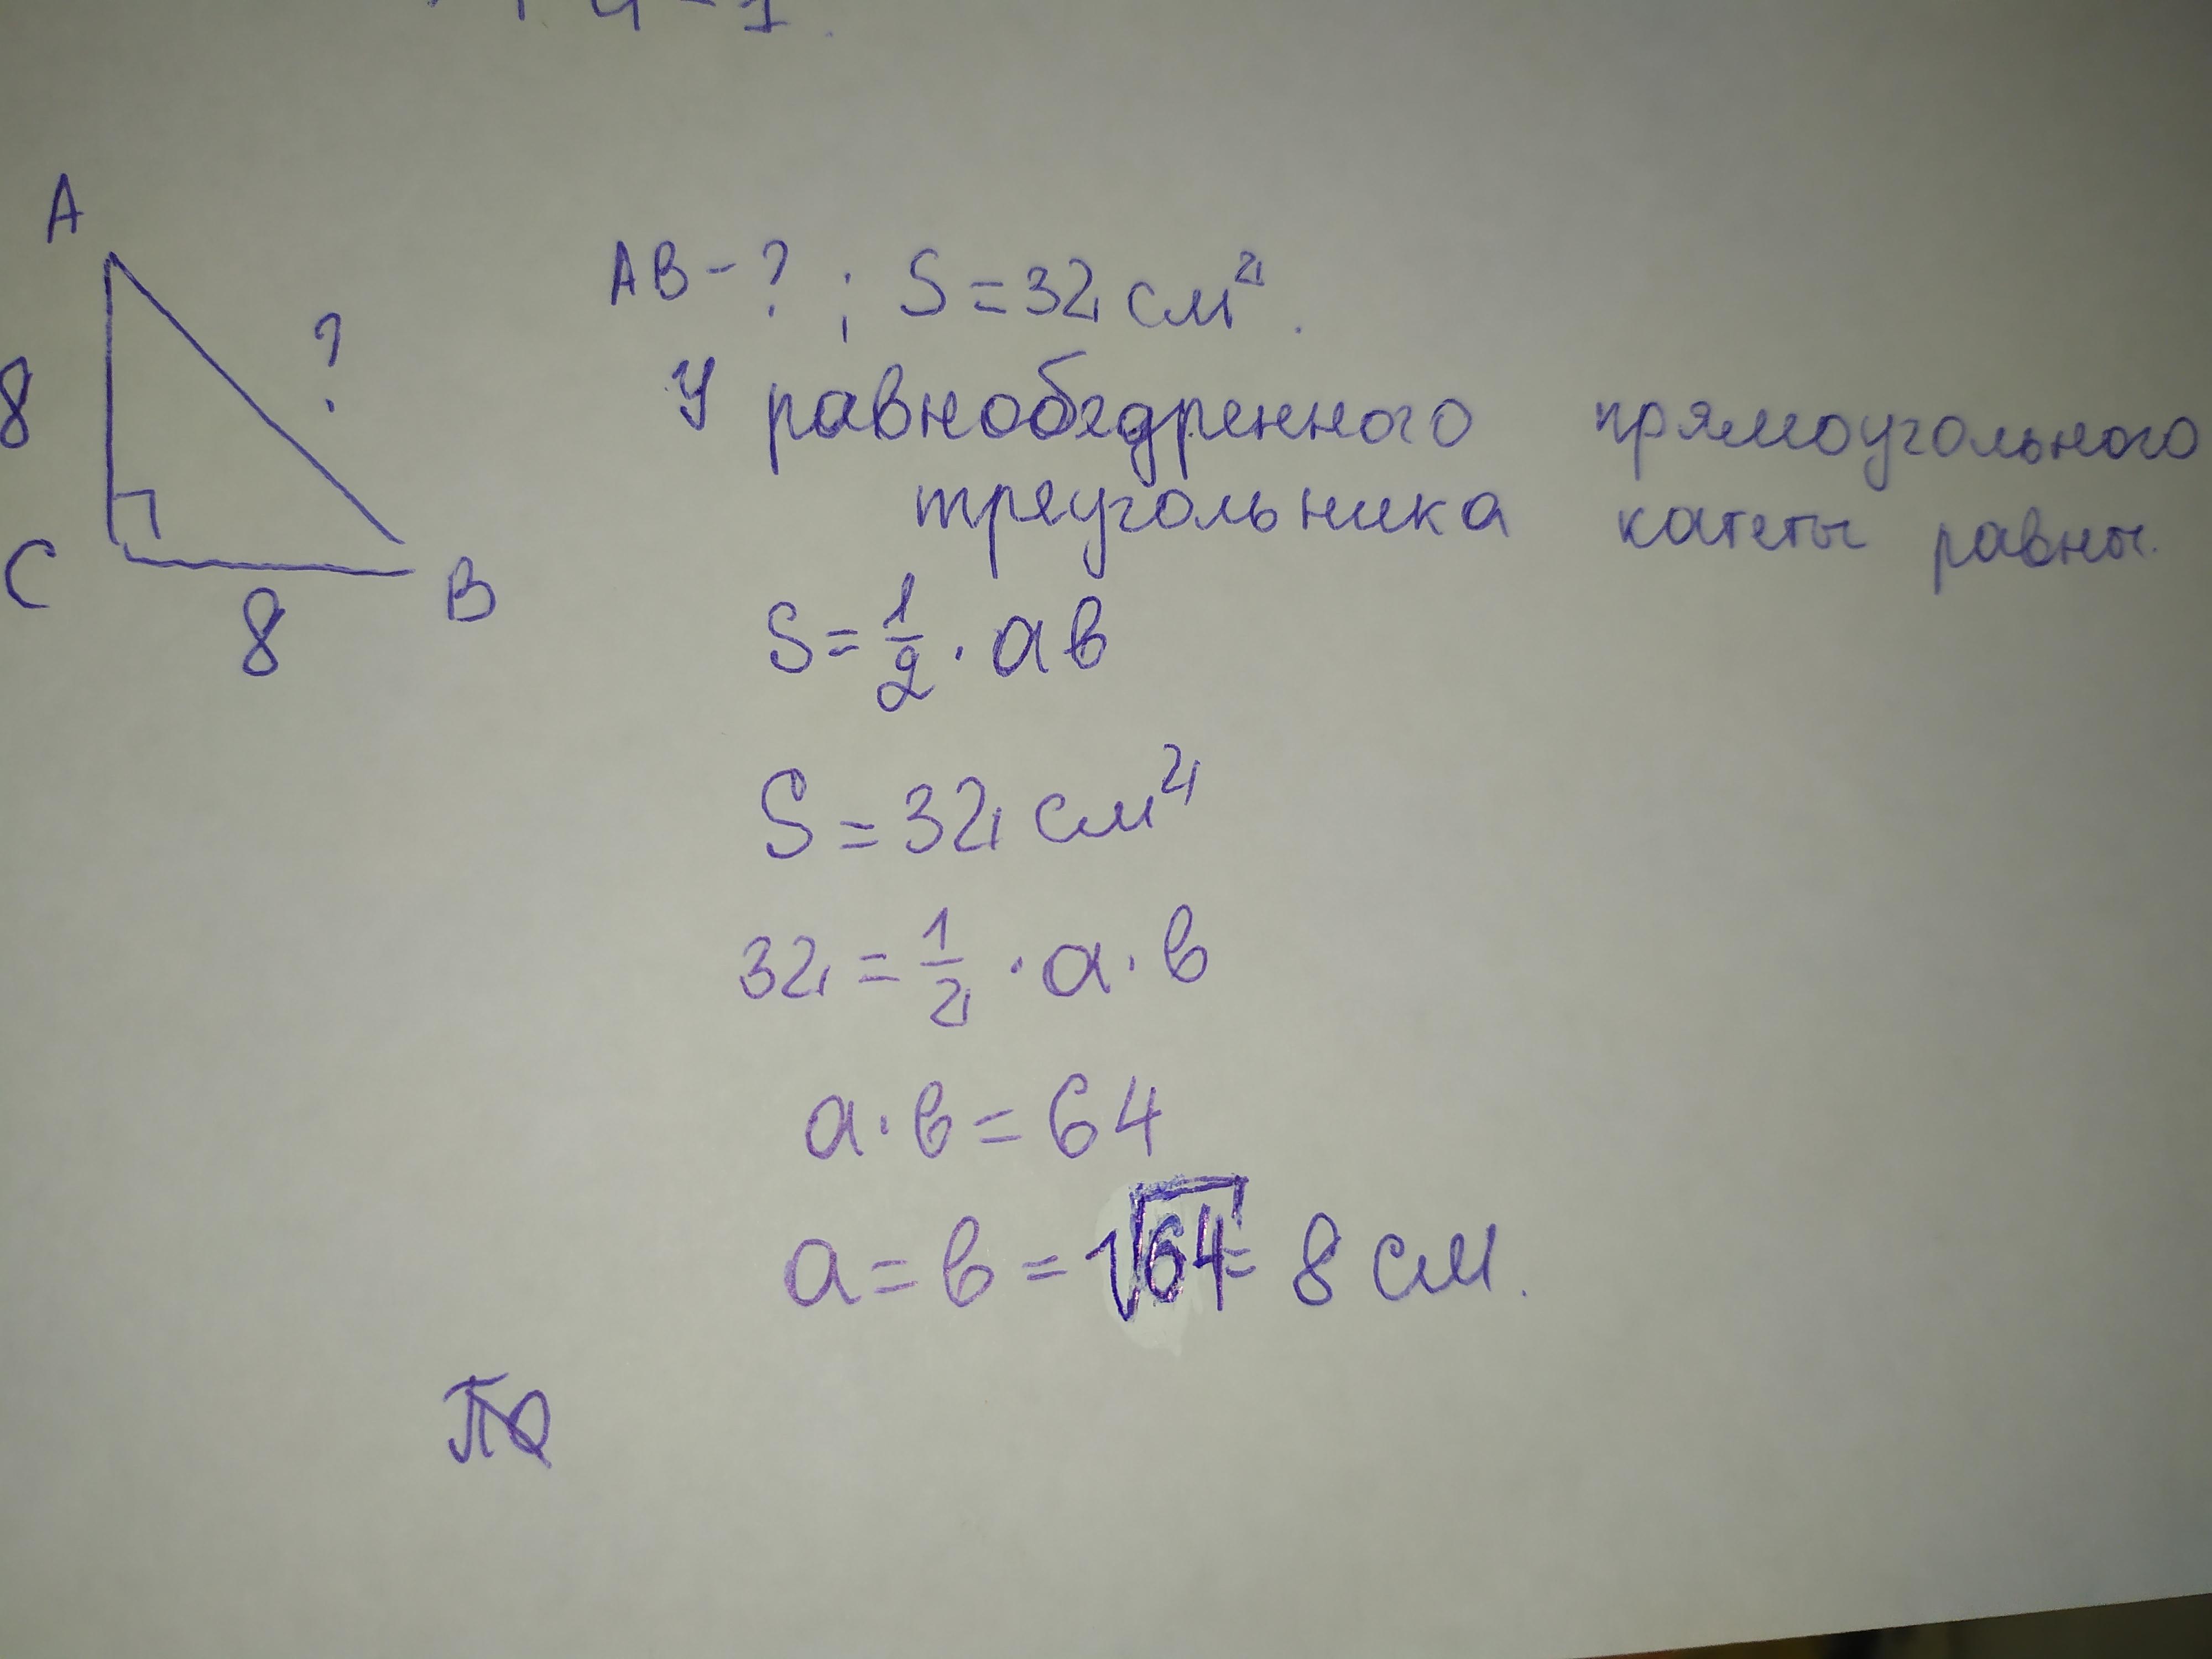 A
8
?
C
8
B
AB - ? ; S = 32 см².
У равнобедренного прямоугольного
треугольника катеты равны.
S = 1/2 · ав
S = 32 см²
32 = 1/2 · а · в
а · в = 64
а = в = √64 = 8 см.